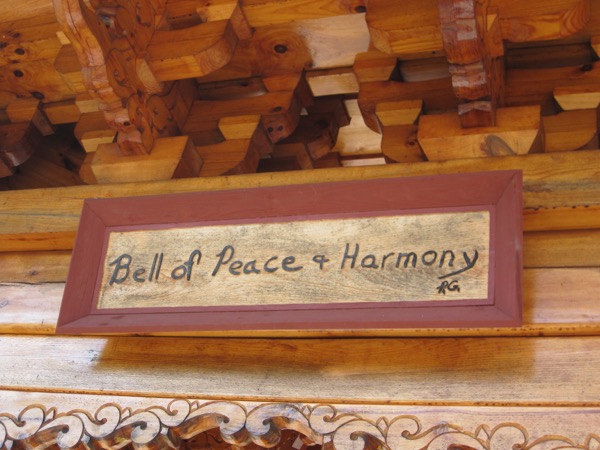 Bell of Peace & Harmony
RG